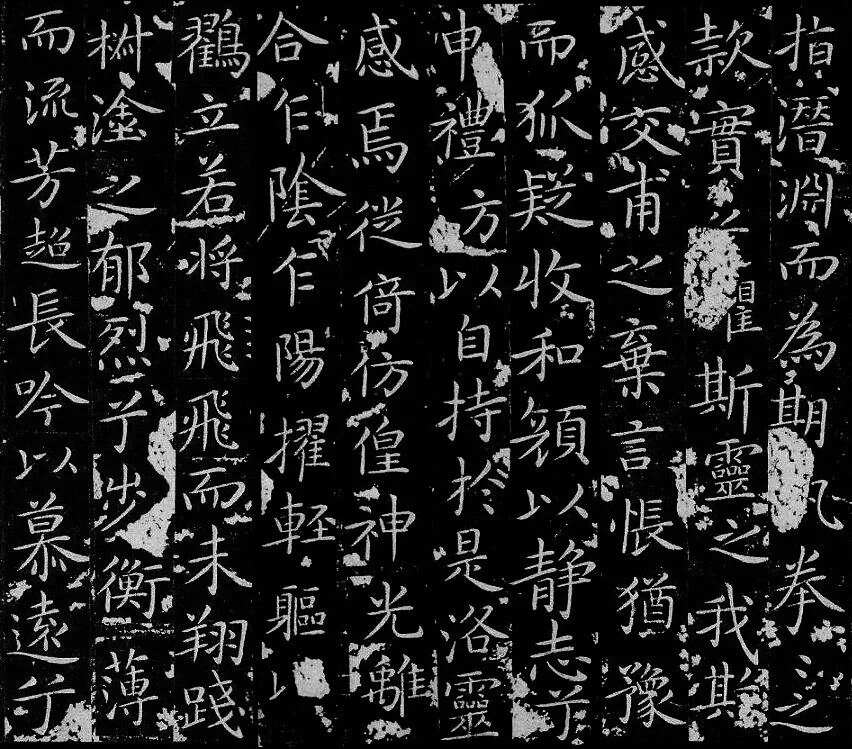 指潛淵而為期拳〻之
款實斯靈之我欺
感交甫之棄言悵猶豫
而狐疑收和顏以静志兮
申禮方以自持於是洛靈
感焉從倚彷徨神光離
合乍陰乍陽擢輕軀以
鶴立若將飛飛而未翔踐
椒塗之郁烈兮步衡薄
而流芳超長吟以慕遠兮